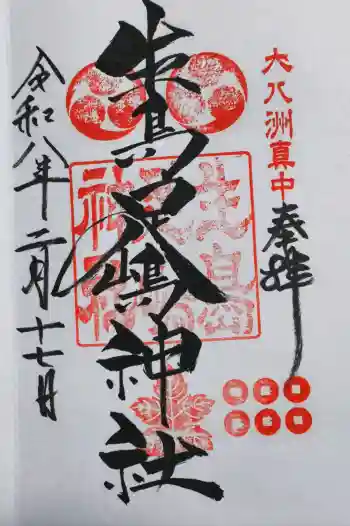 大八洲真中
奉拝
生島足嶋神社
令和八年二月十七日